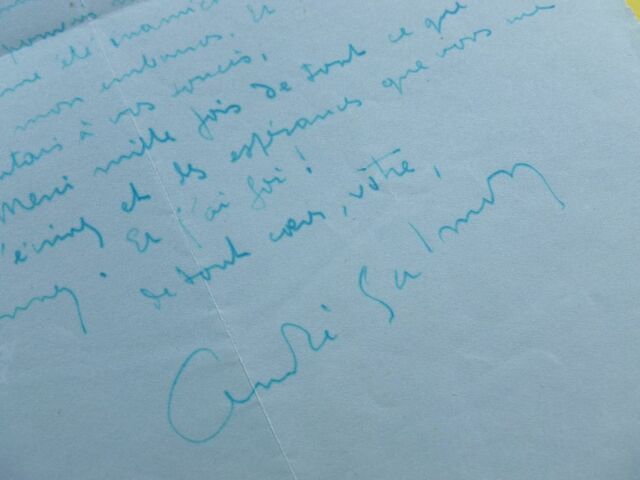 été
mon embarras. Et
à vos soucis,
Merci mille fois de tout ce que
et les espérances que vous me
. Et j'ai foi !
de tout cœur, vôtre,
André Salmon